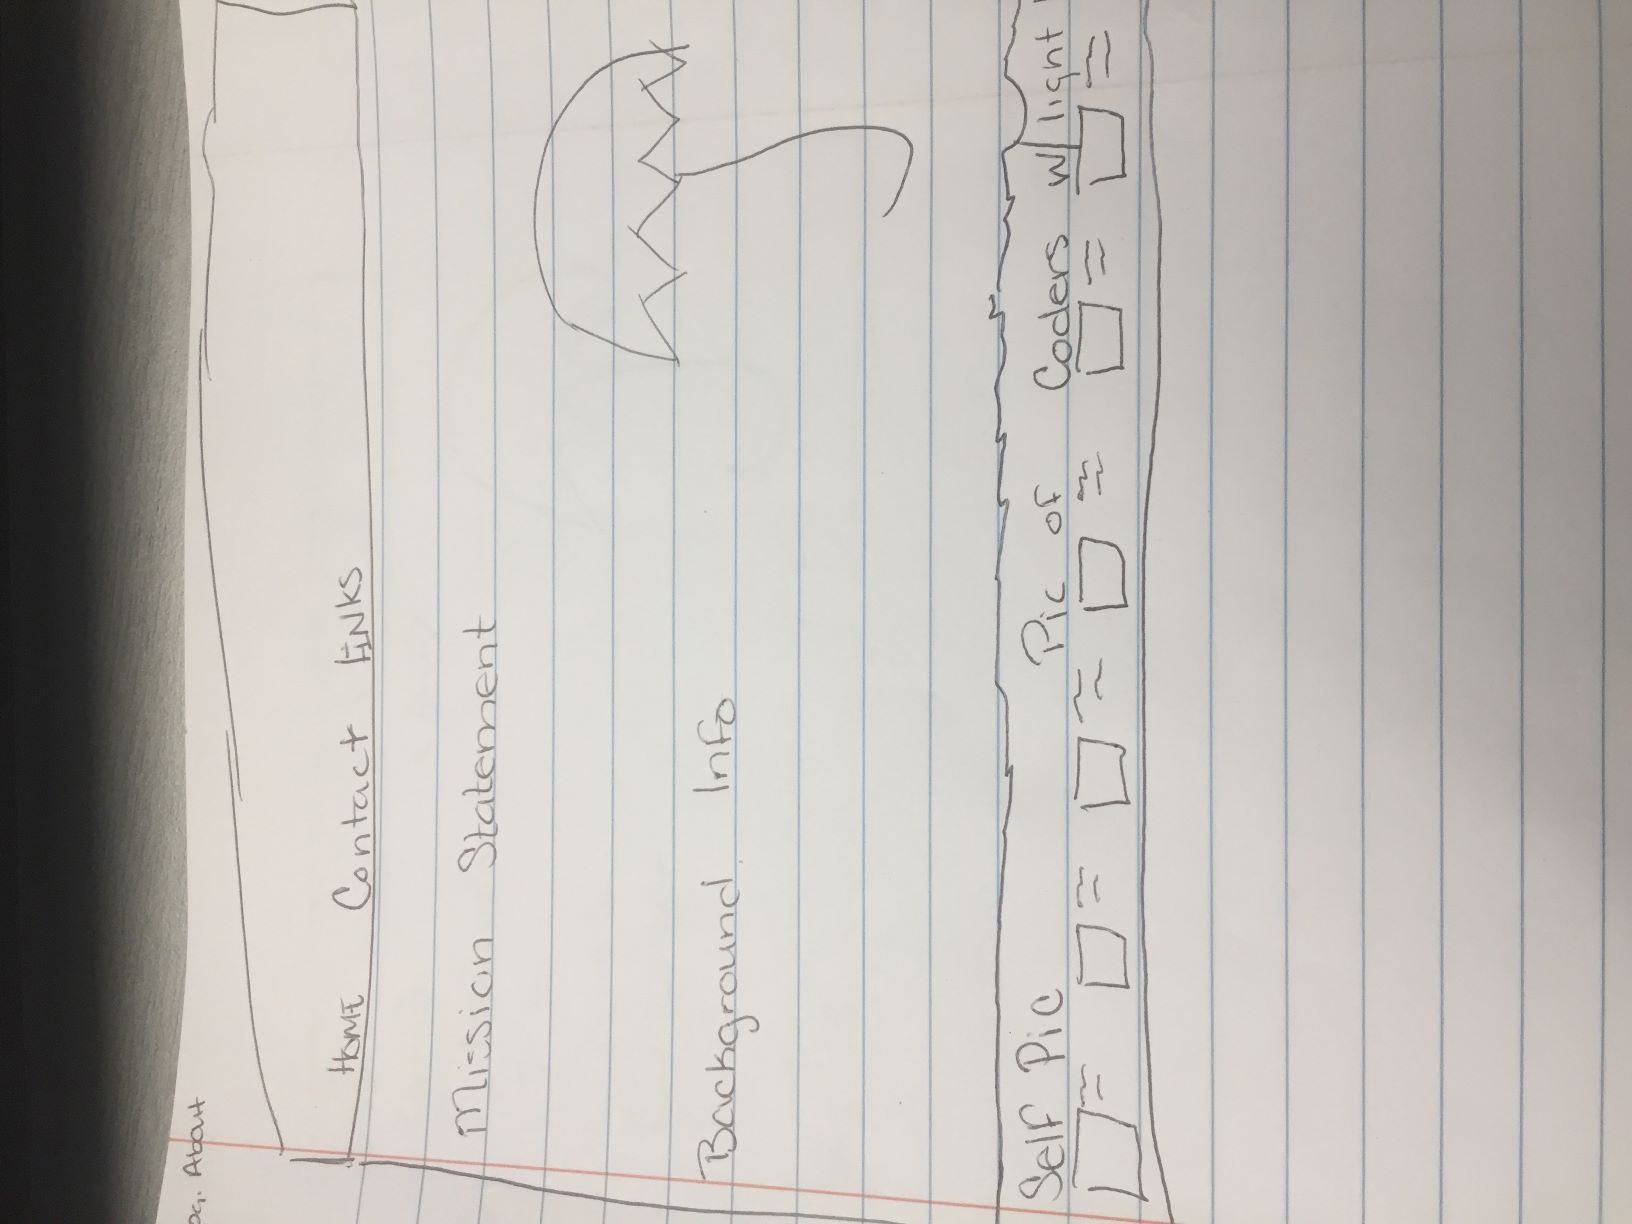 About
HOME Contact LINKS
Mission Statement
Background Info
Self Pic Pic of Coders w/ light